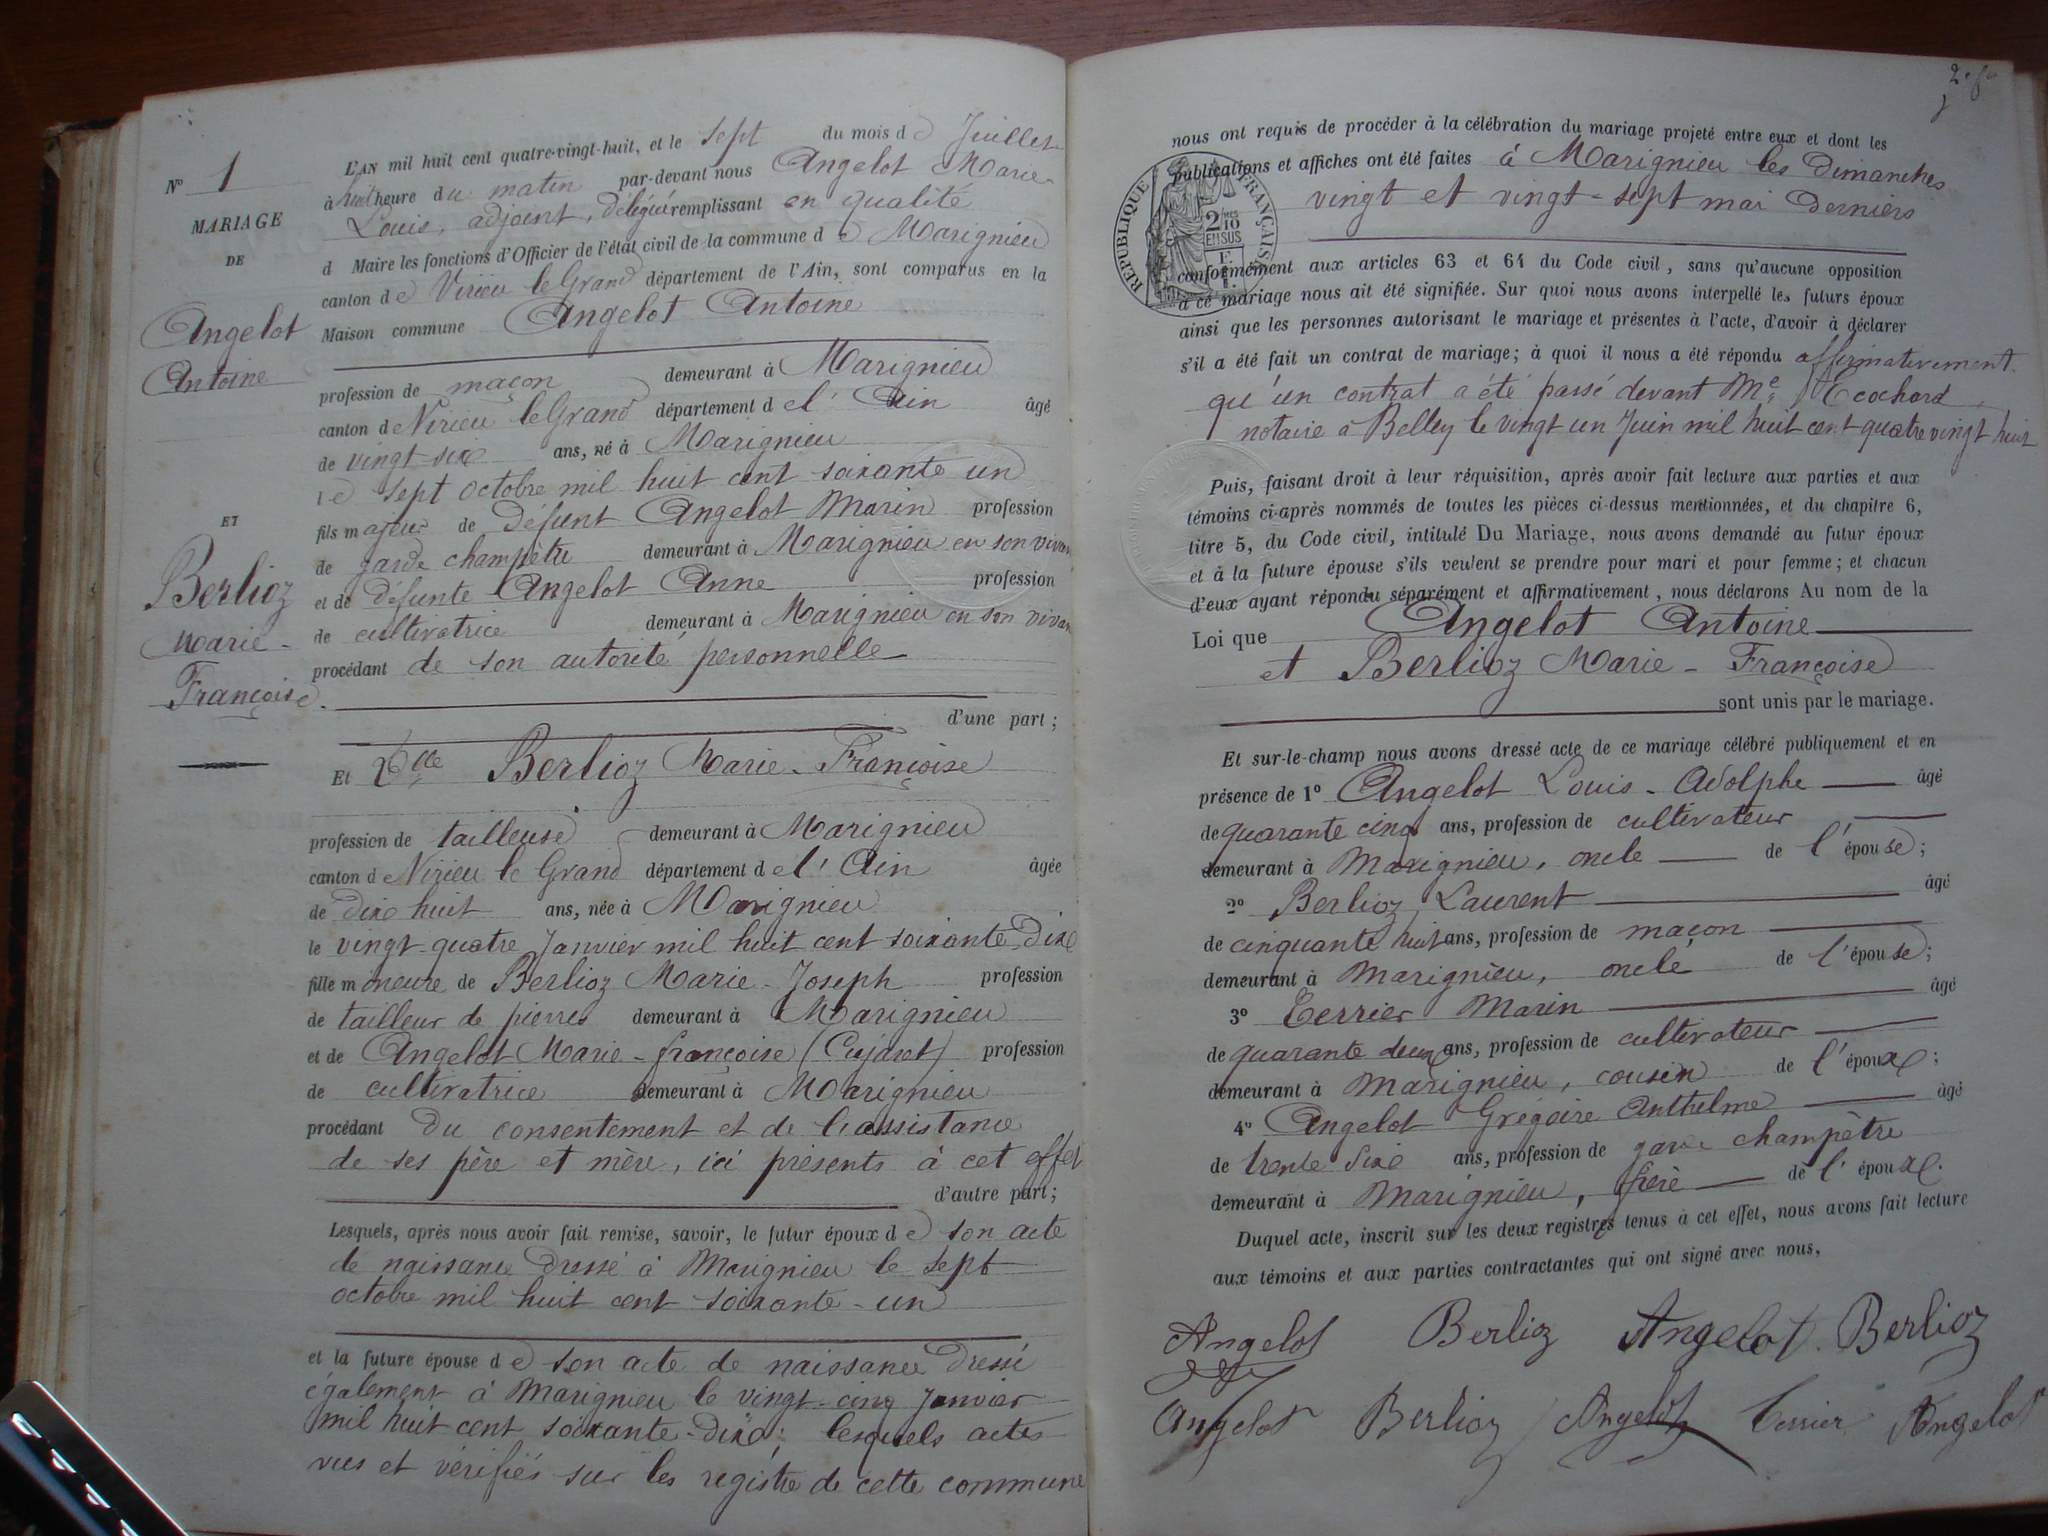 N° 1
MARIAGE
DE
Angelot
Antoine
ET
Berlioz
Marie-
Françoise.
L'AN mil huit cent quatre-vingt-huit, et le sept du mois de Juillet
à huit heure du matin par-devant nous Angelot Marie-
Louis, adjoint, délégué remplissant en qualité
d Maire les fonctions d'Officier de l'état civil de la commune de Marignieu
canton de Virieu le Grand département de l'Ain, sont comparus en la
Maison commune Angelot Antoine
profession de maçon demeurant à Marignieu
canton de Virieu le Grand département de l'Ain âgé
de vingt six ans, né à Marignieu
le sept octobre mil huit cent soixante un
fils majeur de défunt Angelot Marin profession
de garde champêtre demeurant à Marignieu en son vivan
et de défunte Angelot Anne profession
de cultivatrice demeurant à Marignieu en son vivan
procédant de son autorité personnelle
d'une part;
Et Dlle Berlioz Marie-Françoise
profession de tailleuse demeurant à Marignieu
canton de Virieu le Grand département de l'Ain âgée
de dix huit ans, née à Marignieu
le vingt-quatre Janvier mil huit cent soixante-dix
fille mineure de Berlioz Marie-Joseph profession
de tailleur de pierres demeurant à Marignieu
et de Angelot Marie-françoise (Cujaret) profession
de cultivatrice demeurant à Marignieu
procédant du consentement et de l'assistance
de ses père et mère, ici présents à cet effet
d'autre part;
Lesquels, après nous avoir fait remise, savoir, le futur époux de son acte
de naissance dressé à Marignieu le sept
octobre mil huit cent soixante-un
et la future épouse de son acte de naissance dressé
également à Marignieu le vingt-cinq Janvier
mil huit cent soixante-dix; lesquels actes
vus et vérifiés sur les registre de cette commune
nous ont requis de procéder à la célébration du mariage projeté entre eux et dont les
publications et affiches ont été faites à Marignieu les dimanches
vingt et vingt-sept mai derniers
RÉPUBLIQUE FRANÇAISE
2/10
EN SUS
conformément aux articles 63 et 64 du Code civil, sans qu'aucune opposition
à ce mariage nous ait été signifiée. Sur quoi nous avons interpellé les futurs époux
ainsi que les personnes autorisant le mariage et présentes à l'acte, d'avoir à déclarer
s'il a été fait un contrat de mariage; à quoi il nous a été répondu affirmativement
qu'un contrat a été passé devant Me
notaire à Belley le vingt un Juin mil huit cent quatre vingt huit
Puis, faisant droit à leur réquisition, après avoir fait lecture aux parties et aux
témoins ci-après nommés de toutes les pièces ci-dessus mentionnées, et du chapitre 6,
titre 5, du Code civil, intitulé Du Mariage, nous avons demandé au futur époux
et à la future épouse s'ils veulent se prendre pour mari et pour femme; et chacun
d'eux ayant répondu séparément et affirmativement, nous déclarons Au nom de la
Loi que Angelot Antoine
et Berlioz Marie-Françoise
sont unis par le mariage.
Et sur-le-champ nous avons dressé acte de ce mariage célébré publiquement et en
présence de 1° Angelot Louis-Adolphe âgé
de quarante cinq ans, profession de cultivateur
demeurant à Marignieu, oncle de l'épouse;
2° Berlioz Laurent âgé
de cinquante huit ans, profession de maçon
demeurant à Marignieu, oncle de l'épouse;
3° Terrier Marin âgé
de quarante deux ans, profession de cultivateur
demeurant à Marignieu, cousin de l'époux;
4° Angelot Grégoire Anthelme âgé
de trente six ans, profession de garde champêtre
demeurant à Marignieu, frère de l'époux.
Duquel acte, inscrit sur les deux registres tenus à cet effet, nous avons fait lecture
aux témoins et aux parties contractantes qui ont signé avec nous,
Angelot Berlioz Angelot Berlioz
Angelot Berlioz Angelot Terrier Angelot